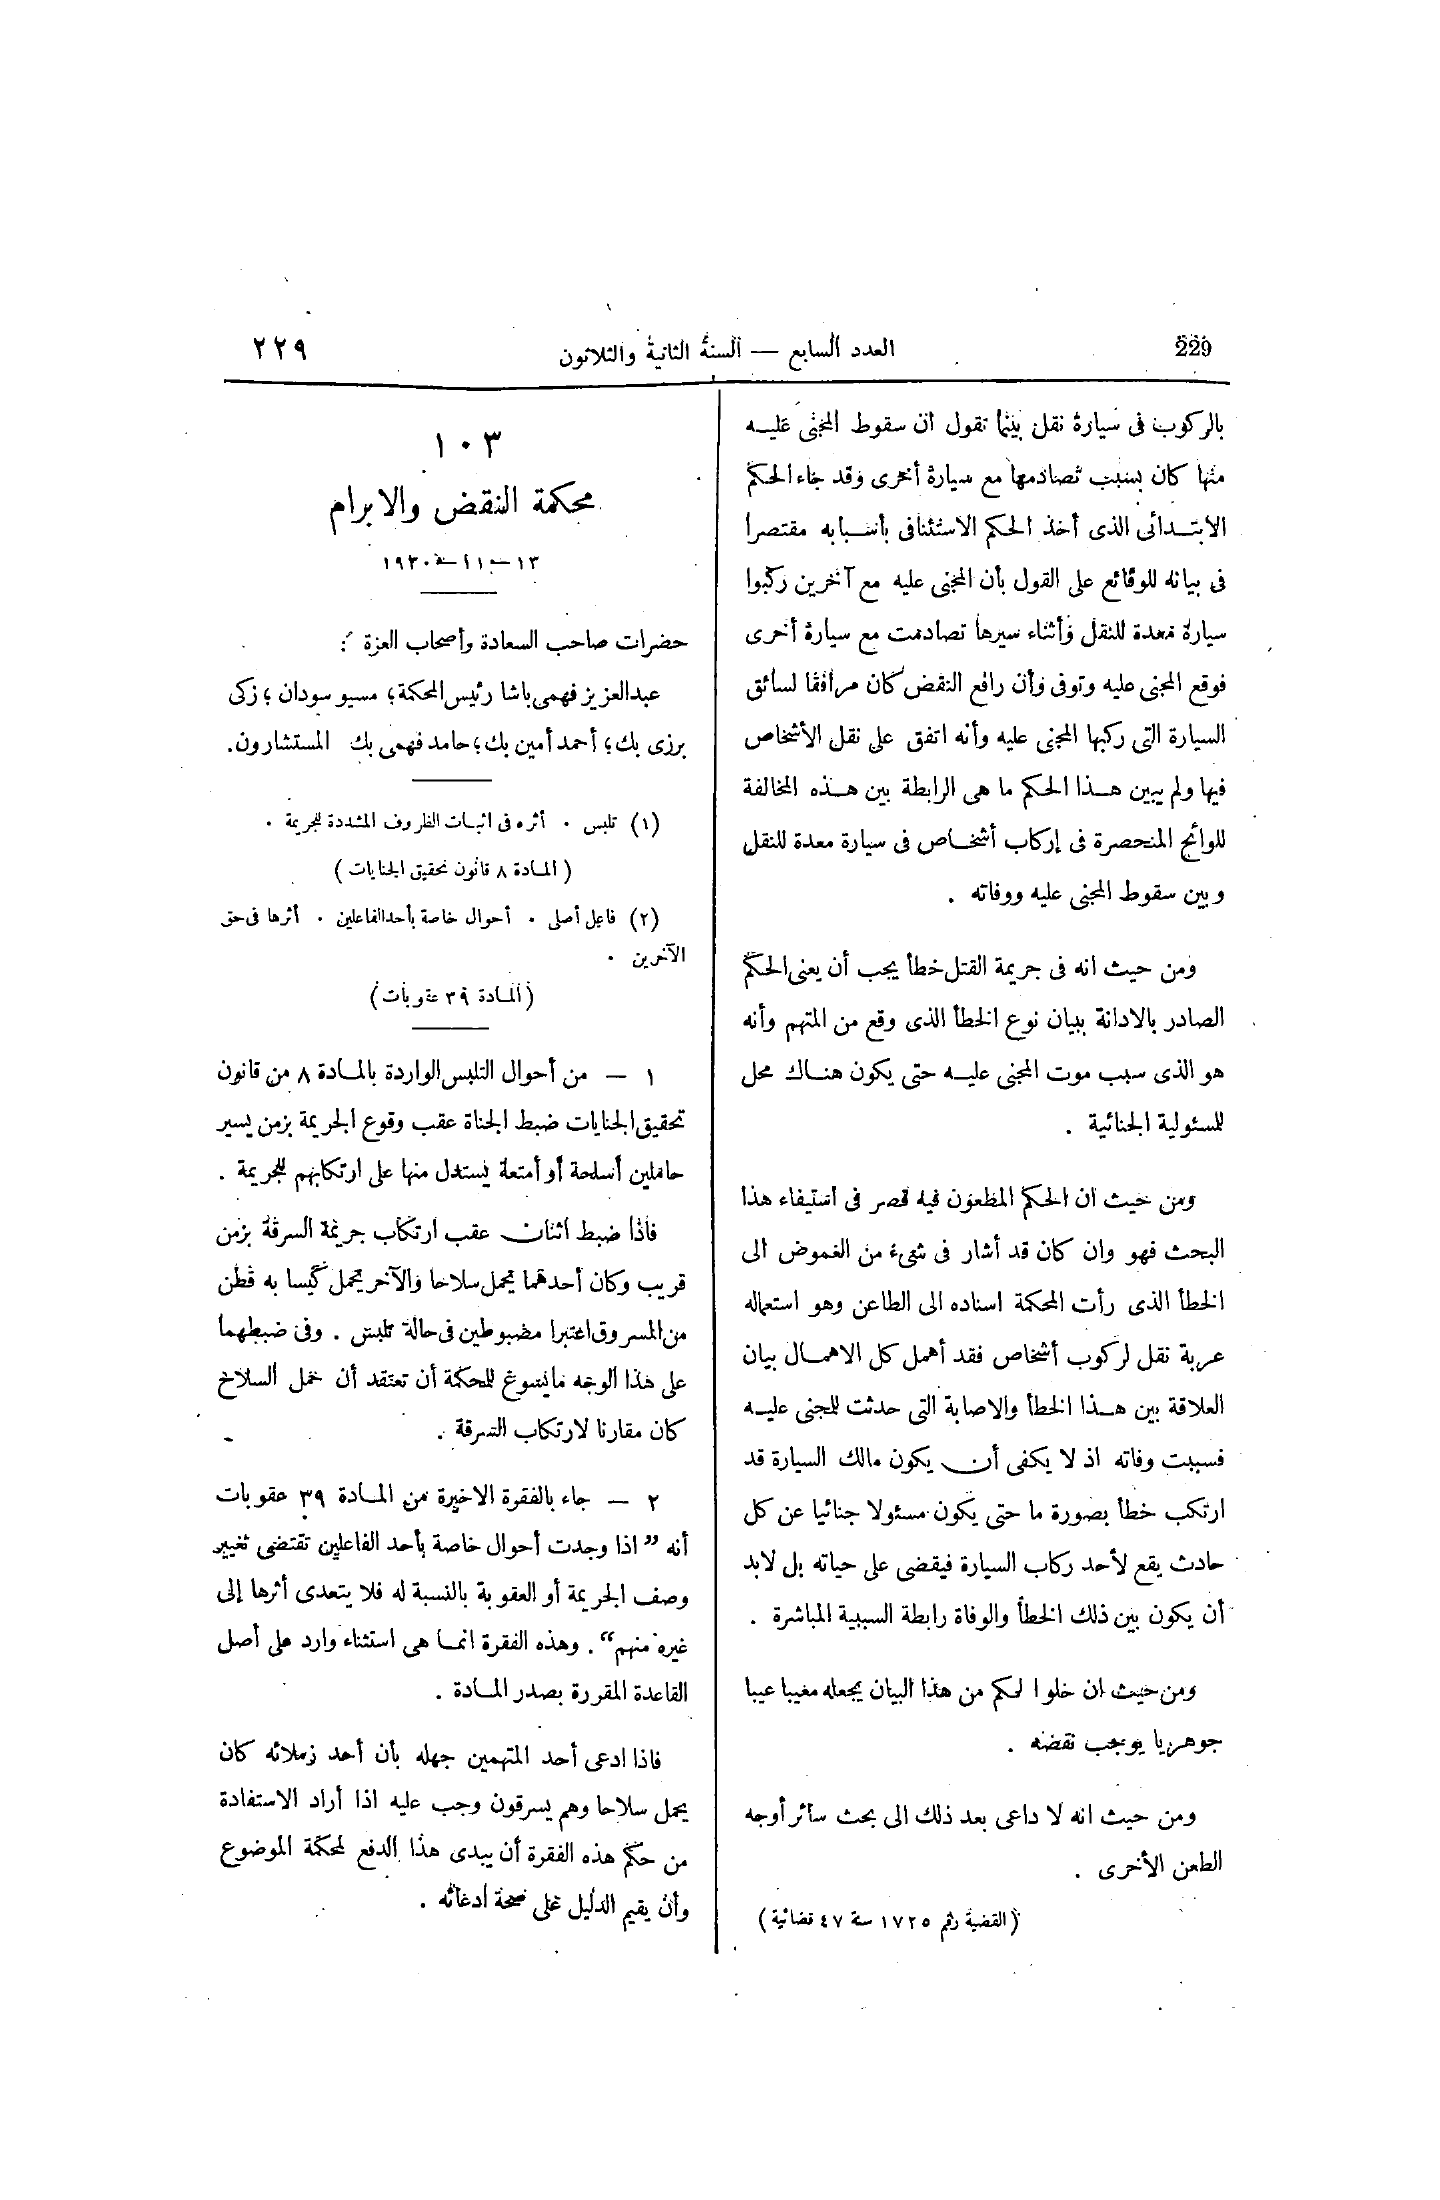 229
العدد السابع — السنة الثانية والثلاثون
٢٢٩
بالركوب فى سيارة نقل بينما تقول ان سقوط المجنى عليه
منها كان بسبب تصادمها مع سيارة أخرى وقد جاء الحكم
الابتدائى الذى أخذ الحكم الاستئنافى بأسبابه مقتصرا
فى بيانه للوقائع على القول بأن المجنى عليه مع آخرين ركبوا
سيارة معدة للنقل وأثناء سيرها تصادمت مع سيارة أخرى
فوقع المجنى عليه وتوفى وأن رافع النقض كان مرافقا لسائق
السيارة التى ركبها المجنى عليه وأنه اتفق على نقل الأشخاص
فيها ولم يبين هذا الحكم ما هى الرابطة بين هذه المخالفة
للوائح المنحصرة فى إركاب أشخاص فى سيارة معدة للنقل
وبين سقوط المجنى عليه ووفاته .
ومن حيث انه فى جريمة القتل خطأ يجب أن يعنى الحكم
الصادر بالادانة ببيان نوع الخطأ الذى وقع من المتهم وأنه
هو الذى سبب موت المجنى عليه حتى يكون هناك محل
للمسئولية الجنائية .
ومن حيث ان الحكم المطعون فيه قصر فى استيفاء هذا
البحث فهو وان كان قد أشار فى شىء من الغموض الى
الخطأ الذى رأت المحكمة اسناده الى الطاعن وهو استعماله
عربة نقل لركوب أشخاص فقد أهمل كل الاهمال بيان
العلاقة بين هذا الخطأ والاصابة التى حدثت للمجنى عليه
فسببت وفاته اذ لا يكفى أن يكون مالك السيارة قد
ارتكب خطأ بصورة ما حتى يكون مسئولا جنائيا عن كل
حادث يقع لأحد ركاب السيارة فيقضى على حياته بل لابد
أن يكون بين ذلك الخطأ والوفاة رابطة السببية المباشرة .
ومن حيث ان خلوا لحكم من هذا البيان يجعله معيبا عيبا
جوهريا يوجب نقضه .
ومن حيث انه لا داعى بعد ذلك الى بحث سائر أوجه
الطعن الأخرى .
(القضية رقم ١٧٢٥ سنة ٤٧ قضائية)
١٠٣
محكمة النقض والابرام
١٣ — ١١ — ١٩٣٠
حضرات صاحب السعادة وأصحاب العزة :
عبدالعزيز فهمى باشا رئيس المحكمة؛ مسيو سودان ؛ زكى
برزى بك؛ أحمد أمين بك؛ حامد فهمى بك المستشارون.
(١) تلبس . أثره فى اثبات الظروف المشددة للجريمة .
( المادة ٨ قانون تحقيق الجنايات )
(٢) فاعل أصلى . أحوال خاصة بأحد الفاعلين . أثرها فى حق
الآخرين .
(المادة ٣٩ عقوبات)
١ — من أحوال التلبس الواردة بالمادة ٨ من قانون
تحقيق الجنايات ضبط الجناة عقب وقوع الجريمة بزمن يسير
حاملين أسلحة أو أمتعة يستدل منها على ارتكابهم للجريمة .
فاذا ضبط اثنان عقب ارتكاب جريمة السرقة بزمن
قريب وكان أحدهما يحمل سلاحا والآخر يحمل كيسا به قطن
من المسروق اعتبرا مضبوطين فى حالة تلبس . وفى ضبطهما
على هذا الوجه ما يسوغ للمحكمة أن تعتقد أن حمل السلاح
كان مقارنا لارتكاب السرقة .
٢ — جاء بالفقرة الاخيرة من المادة ٣٩ عقوبات
أنه ” اذا وجدت أحوال خاصة بأحد الفاعلين تقتضى تغيير
وصف الجريمة أو العقوبة بالنسبة له فلا يتعدى أثرها إلى
غيره منهم “ . وهذه الفقرة انما هى استثناء وارد على أصل
القاعدة المقررة بصدر المادة .
فاذا ادعى أحد المتهمين جهله بأن أحد زملائه كان
يحمل سلاحا وهم يسرقون وجب عليه اذا أراد الاستفادة
من حكم هذه الفقرة أن يبدى هذا الدفع لمحكمة الموضوع
وأن يقيم الدليل على صحة ادعائه .